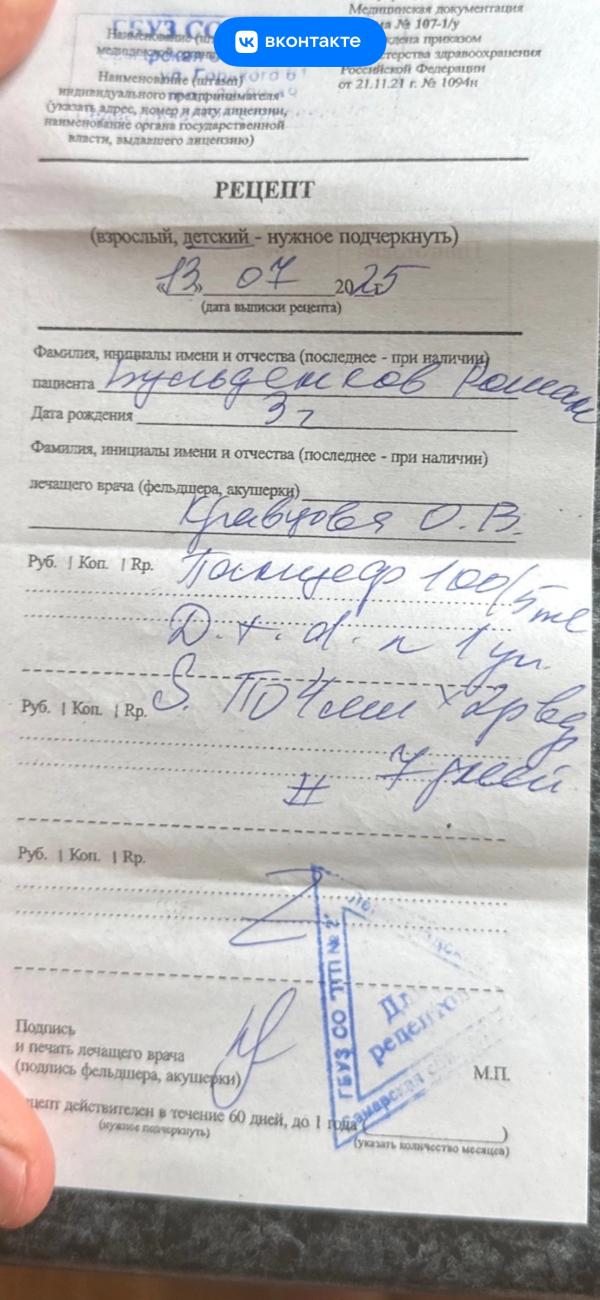 вконтакте
ГБУЗ СО
Медицинская документация
№ 107-1/у
приказом
здравоохранения
Российской Федерации
от 21.11.21 г. № 1094н
Наименование (штамп)
индивидуального предпринимателя
(указать адрес, номер и дату лицензии,
наименование органа государственной
власти, выдавшего лицензию)
РЕЦЕПТ
(взрослый, детский - нужное подчеркнуть)
«13» 07 2025 г.
(дата выписки рецепта)
Фамилия, инициалы имени и отчества (последнее - при наличии)
пациента Бульденков Роман
Дата рождения 3 г
Фамилия, инициалы имени и отчества (последнее - при наличии)
лечащего врача (фельдшера, акушерки)
Кравцова О.В.
Руб. | Коп. | Rp. Панцеф 100/5 мл
D.t.d. n 1 уп.
Руб. | Коп. | Rp. S. По 4 мл х 2р в д
# 7 дней
Руб. | Коп. | Rp.
ГБУЗ СО № 2
Для рецептов
Самарская
Подпись
и печать лечащего врача
(подпись фельдшера, акушерки)
М.П.
рецепт действителен в течение 60 дней, до 1 года (
)
(нужное подчеркнуть)
(указать количество месяцев)